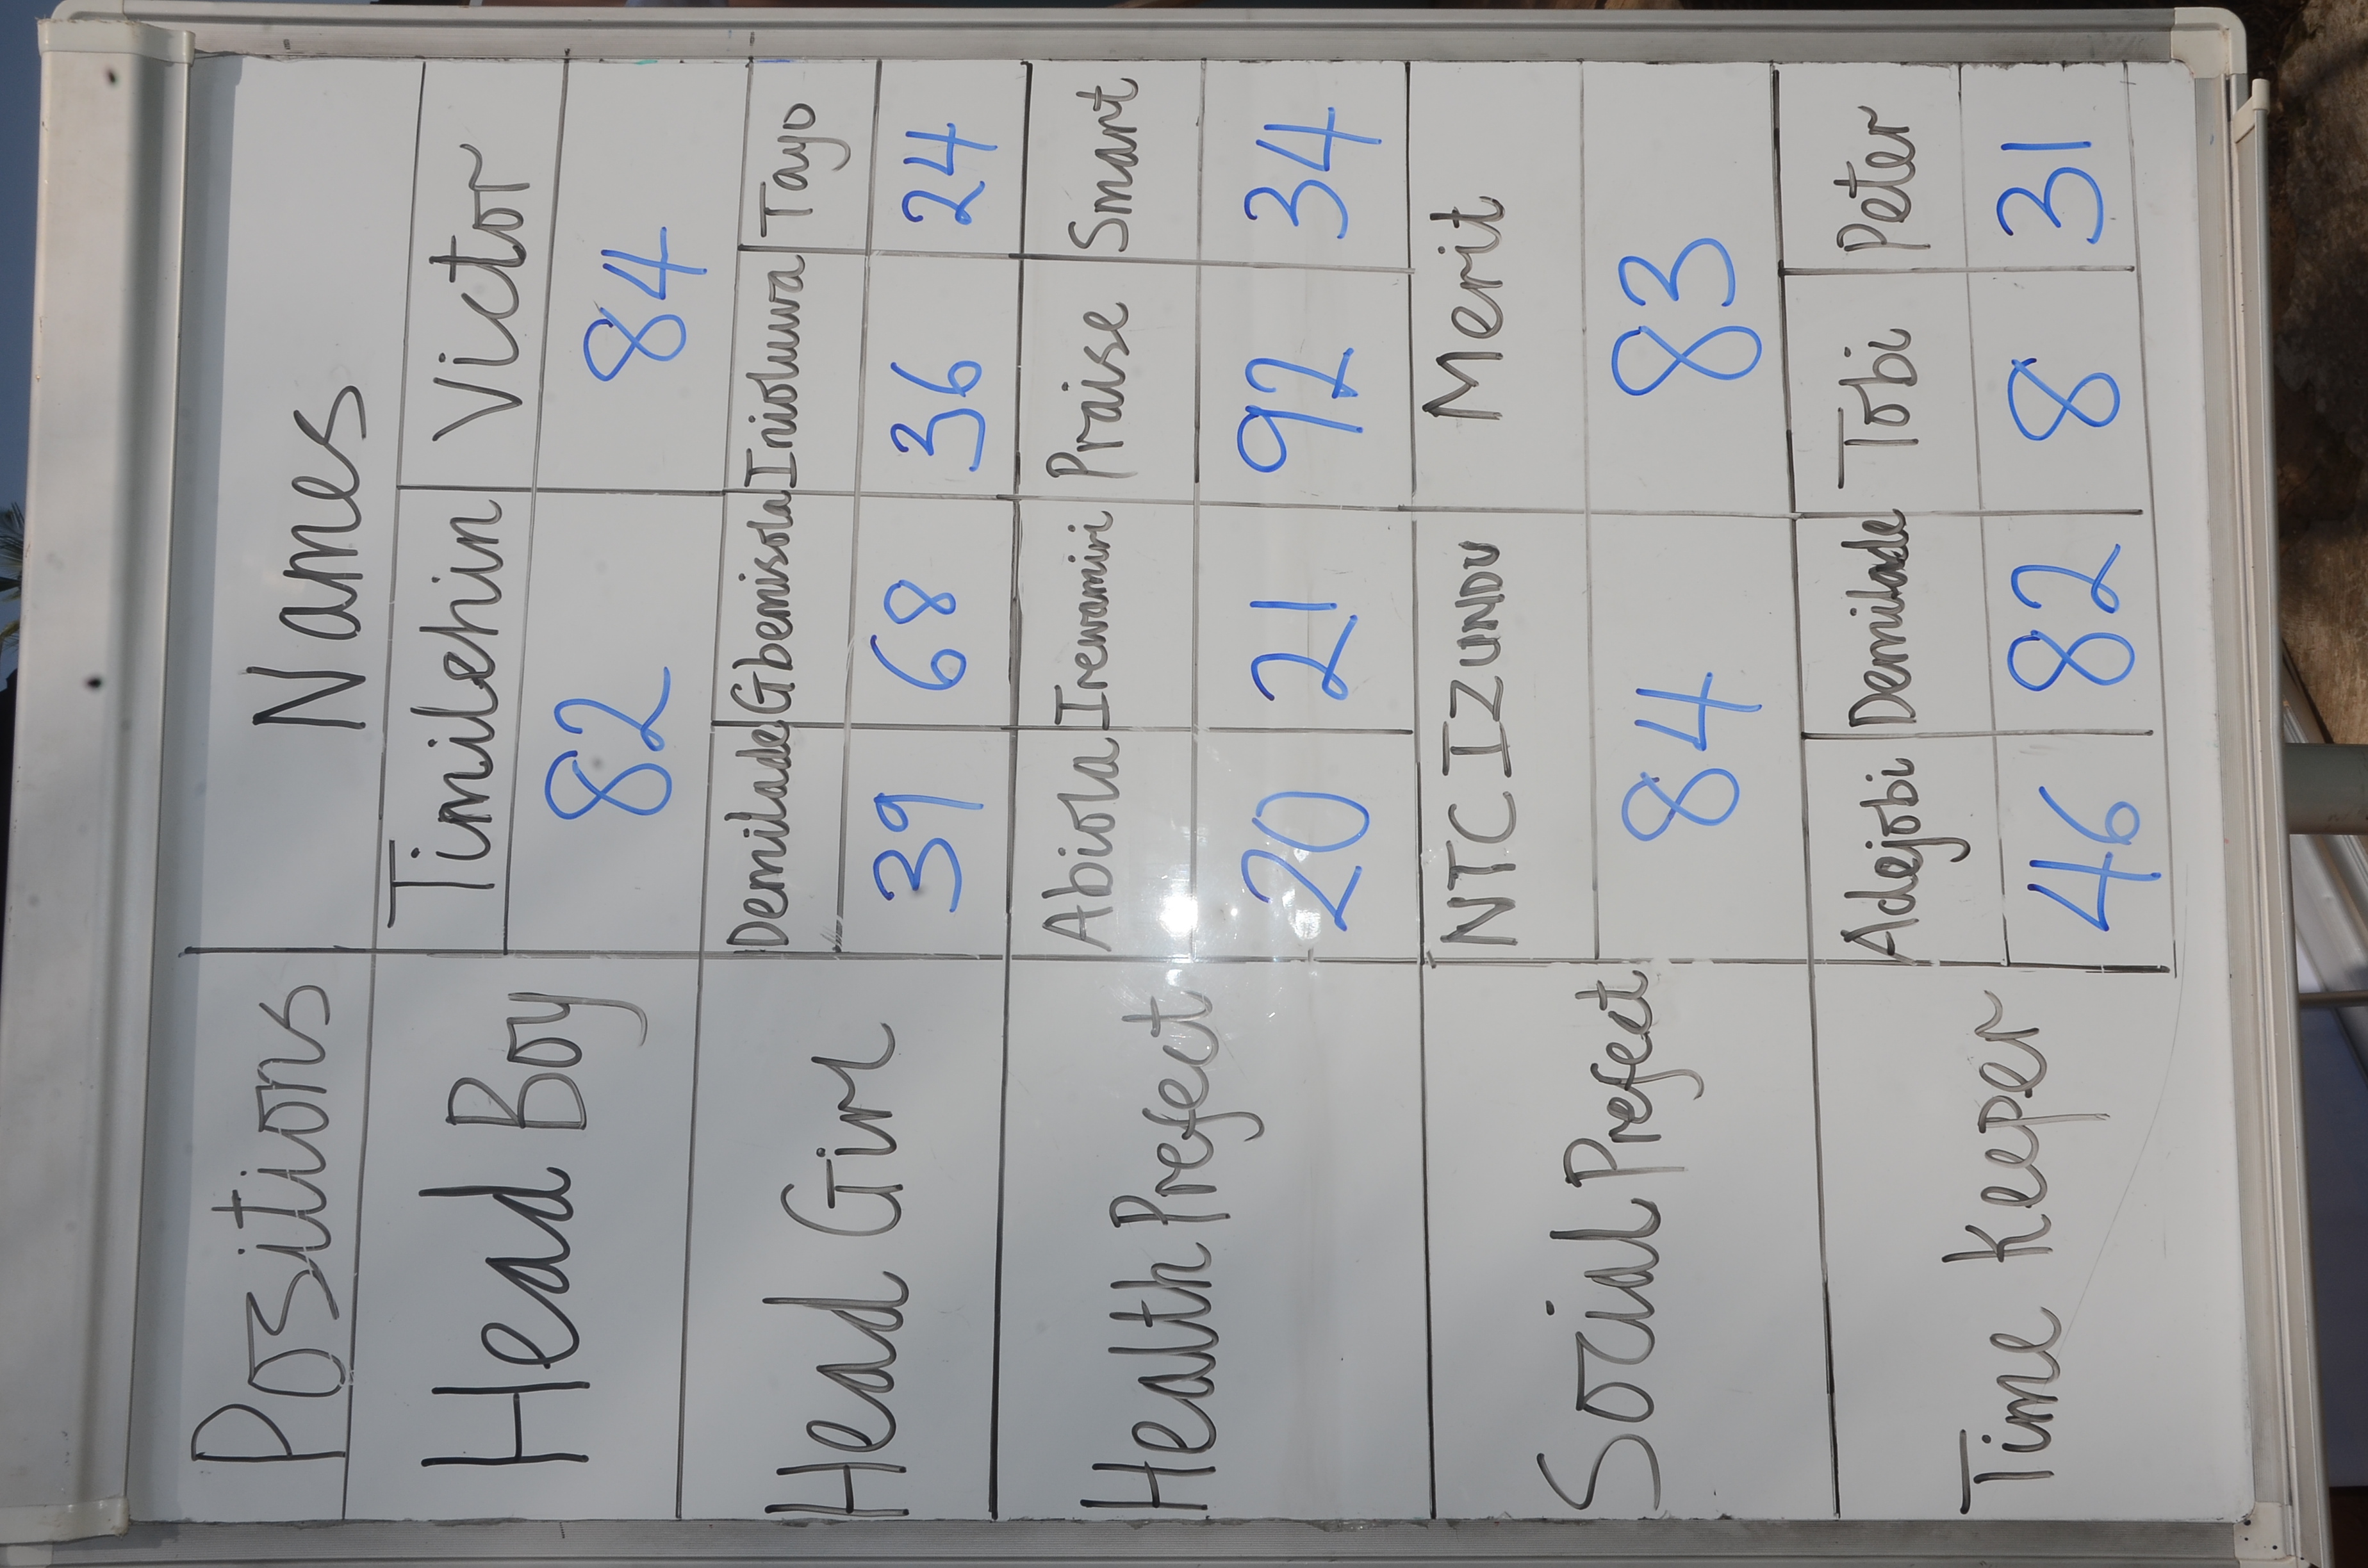 Positions Names
Head Boy Timilehin Victor
82 84
Head Girl Demilade Gbemisola Inioluwa Tayo
39 68 36 24
Health Prefect Abiola Irewamiri Praise Smart
20 21 92 34
Social Prefect NTC IZUNDU Merit
84 83
Time Keeper Adejobi Demilade Tobi Peter
46 82 8 31